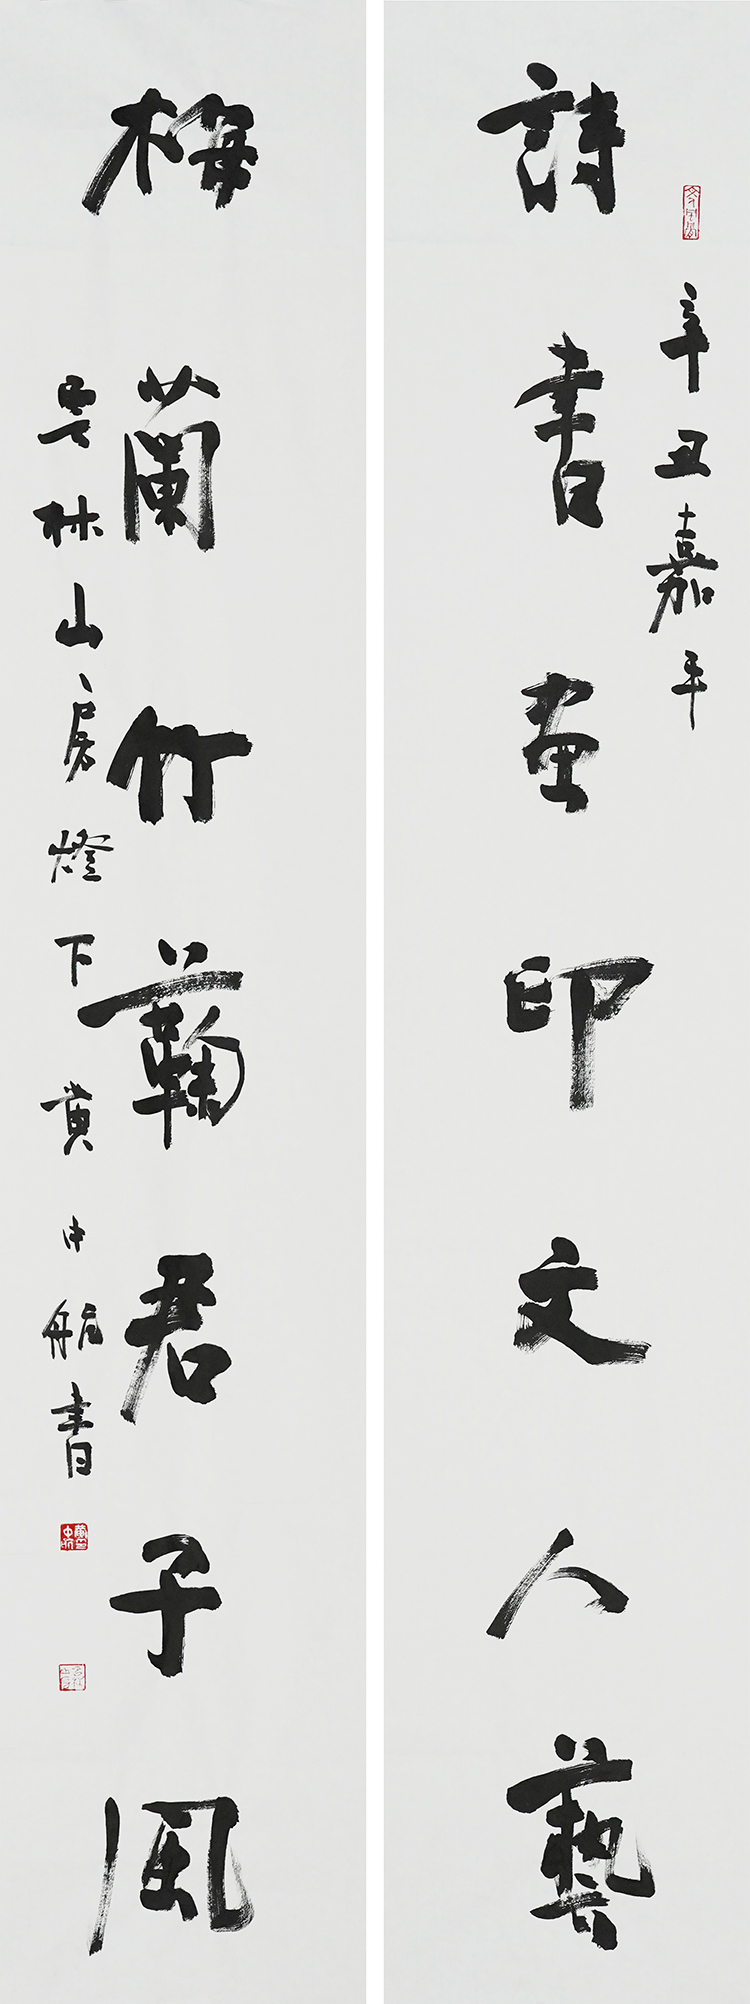 辛丑嘉平
詩書画印文人藝
梅蘭竹蘜君子風
雲林山房燈下黄中航書